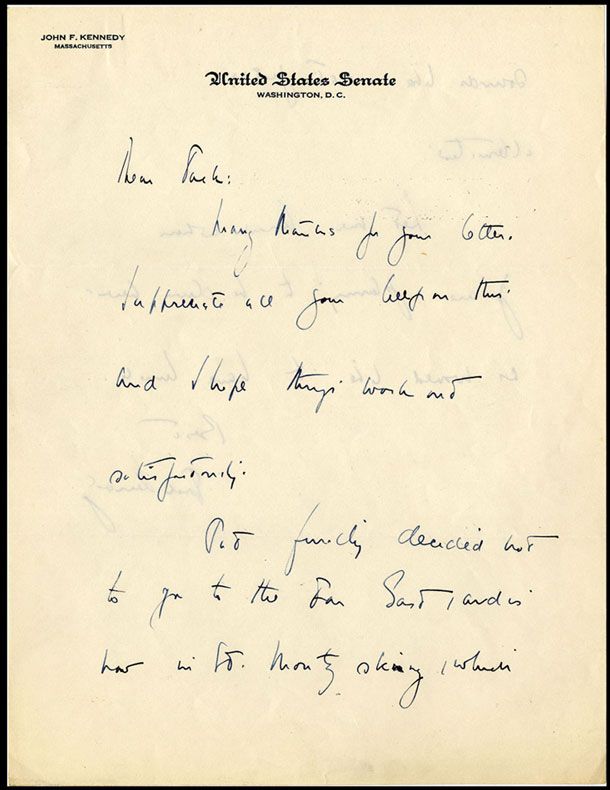 JOHN F. KENNEDY
MASSACHUSETTS
United States Senate
WASHINGTON, D.C.
Dear
Many thanks for your letter.
I appreciate all your help on this
and I hope things work out
satisfactorily.
Pat finally decided not
to go to the Far East, and is
now in St. Moritz skiing, which